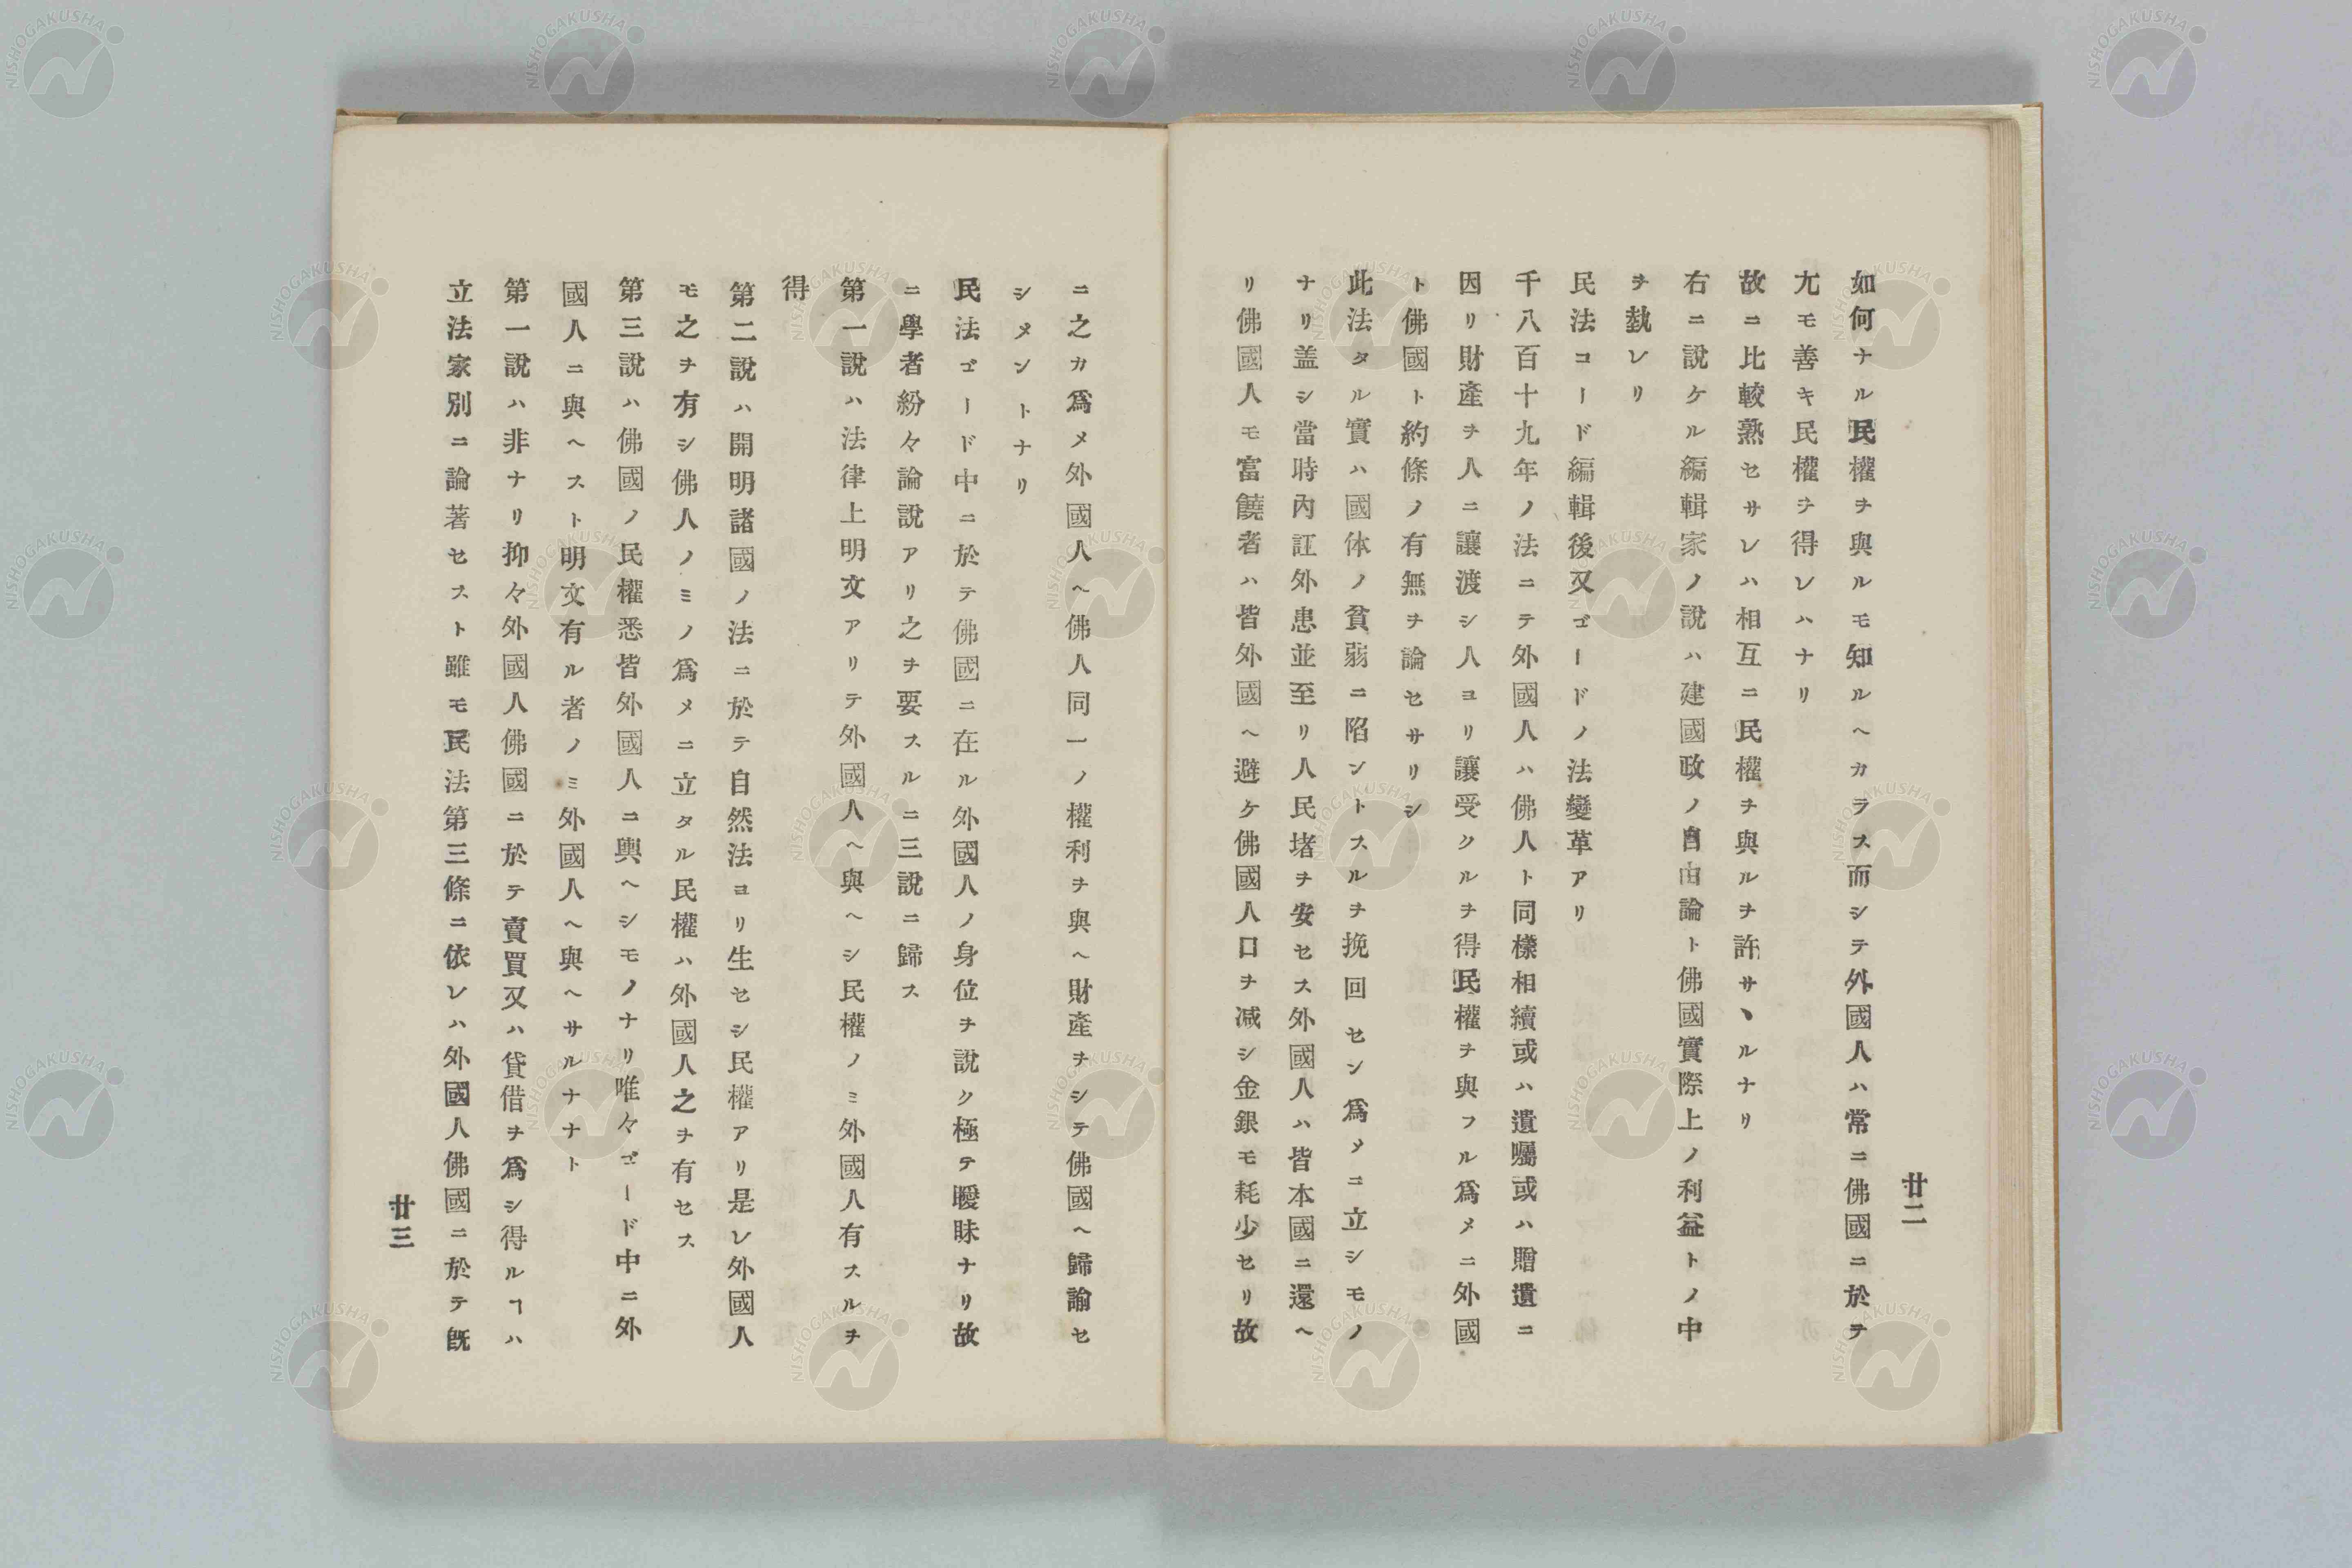 廿二
如何ナル民權ヲ與ルモ知ルヘカラス而シテ外國人ハ常ニ佛國ニ於テ
尤モ善キ民權ヲ得レハナリ
故ニ比較熟セサレハ相互ニ民權ヲ與ルヲ許サヽルナリ
右ニ說ケル編輯家ノ說ハ建國政ノ自由論ト佛國實際上ノ利益トノ中
ヲ執レリ
民法コード編輯後又ゴードノ法變革アリ
千八百十九年ノ法ニテ外國人ハ佛人ト同樣相續或ハ遺囑或ハ贈遺ニ
因リ財產ヲ人ニ讓渡シ人ヨリ讓受クルヲ得民權ヲ與フル爲メニ外國
ト佛國ト約條ノ有無ヲ論セサリシ
此法タル實ハ國体ノ貧弱ニ陷ントスルヲ挽回セン爲メニ立シモノ
ナリ盖シ當時內訌外患並至リ人民堵ヲ安セス外國人ハ皆本國ニ還ヘ
リ佛國人モ富饒者ハ皆外國ヘ避ケ佛國人口ヲ减シ金銀モ耗少セリ故
ニ之カ爲メ外國人ヘ佛人同一ノ權利ヲ與ヘ財產ヲシテ佛國ヘ歸諭セ
シメントナリ
民法ゴード中ニ於テ佛國ニ在ル外國人ノ身位ヲ說ク極テ曖昧ナリ故
ニ學者紛々論說アリ之ヲ要スルニ三說ニ歸ス
第一說ハ法律上明文アリテ外國人ヘ與ヘシ民權ノミ外國人有スルヲ
得
第二說ハ開明諸國ノ法ニ於テ自然法ヨリ生セシ民權アリ是レ外國人
モ之ヲ有シ佛人ノミノ爲メニ立タル民權ハ外國人之ヲ有セス
第三說ハ佛國ノ民權悉皆外國人ニ輿ヘシモノナリ唯々ゴード中ニ外
國人ニ與ヘスト明文有ル者ノミ外國人ヘ與ヘサルナナト
第一說ハ非ナリ抑々外國人佛國ニ於テ賣買又ハ貸借ヲ爲シ得ルヿハ
立法家別ニ論著セスト雖モ民法第三條ニ依レハ外國人佛國ニ於テ旣
廿三